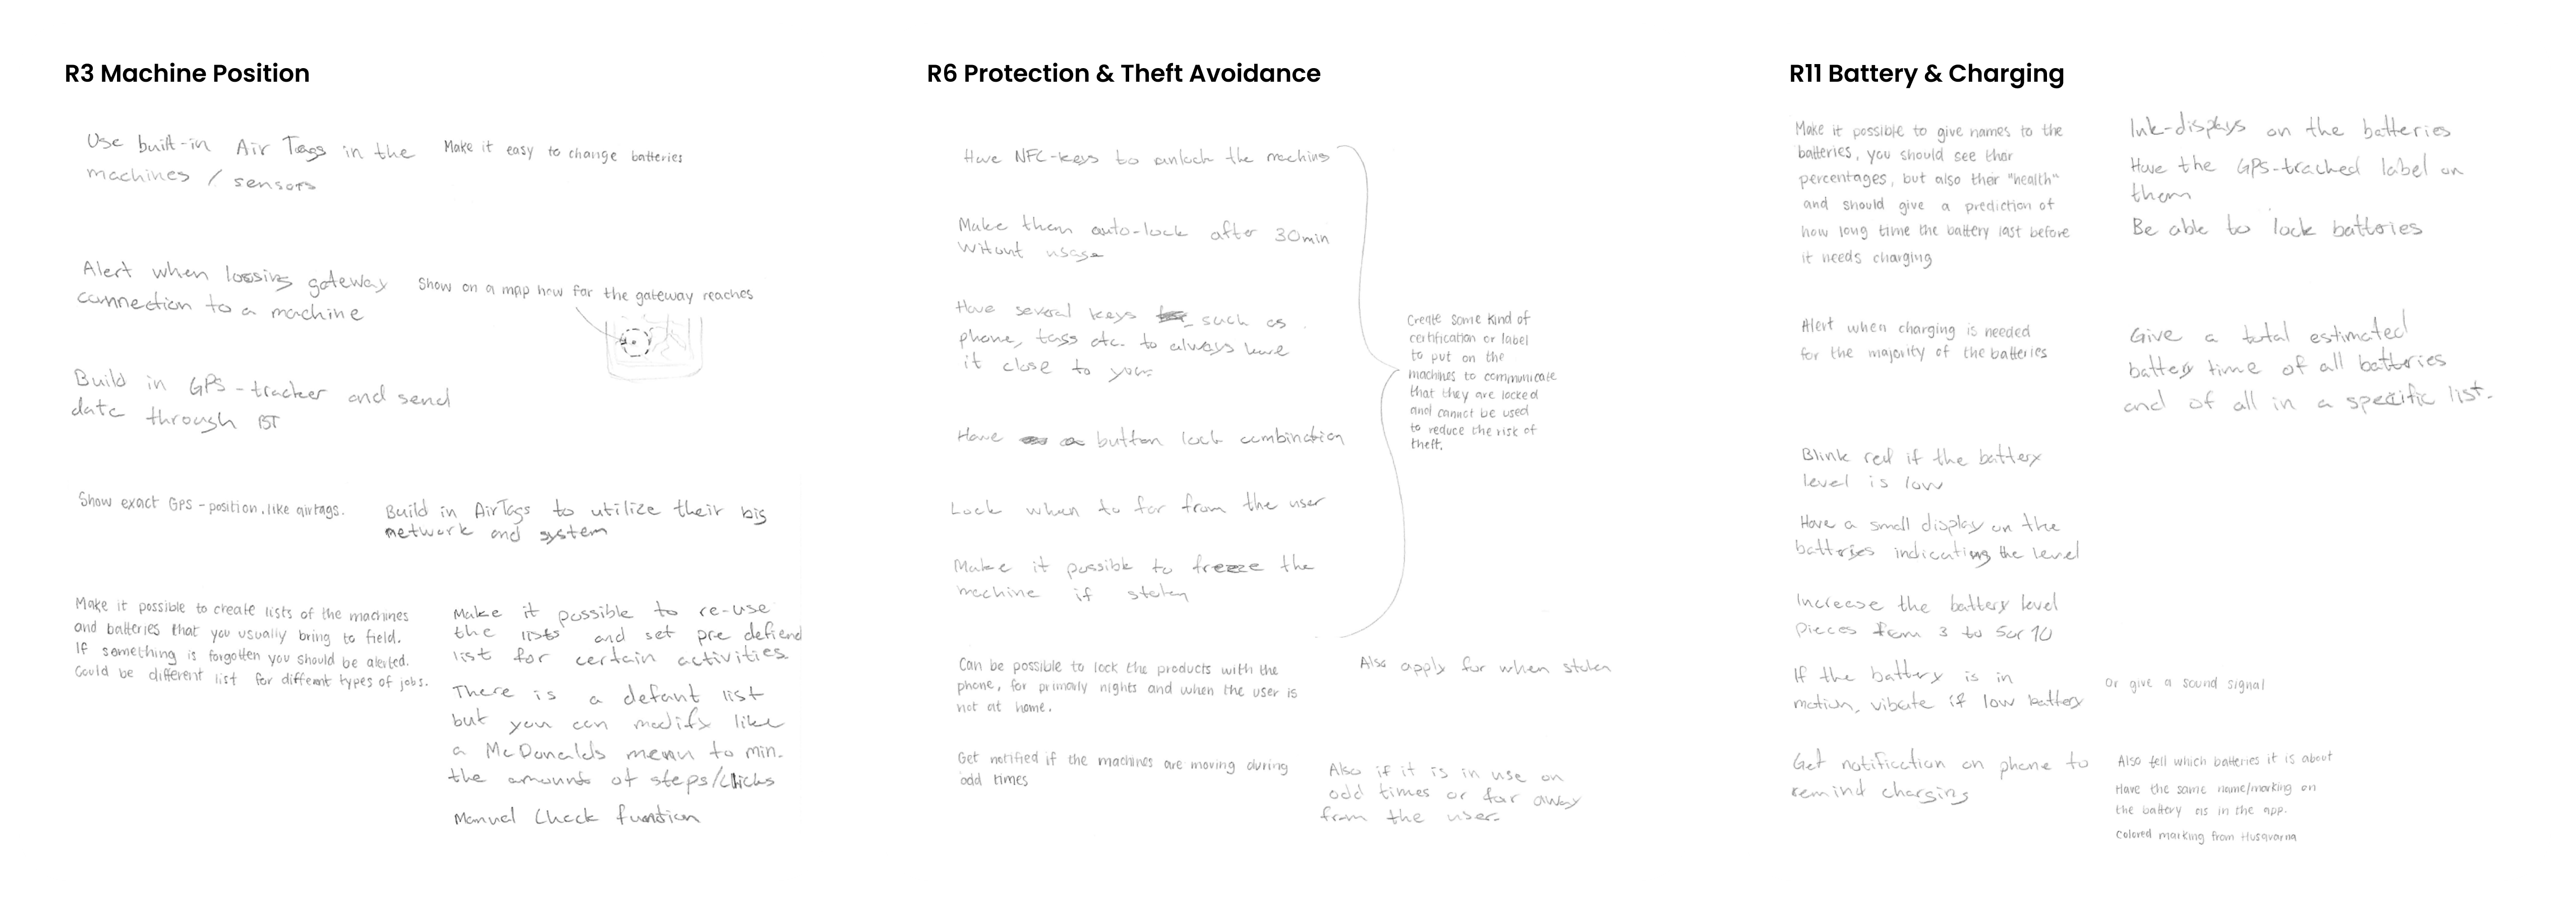 R3 Machine Position
Use built-in Air Tags in the
machines / sensors
Make it easy to change batteries
Alert when lossing gateway
connection to a machine
Show on a map how far the gateway reaches
Build in GPS-tracker and send
data through BT
Show exact GPS-position, like airtags.
Build in AirTags to utilize their big
network and system
Make it possible to create lists of the machines
and batteries that you usually bring to field.
If something is forgotten you should be alerted.
Could be different list for different types of jobs.
Make it possible to re-use
the lists and set pre defiend
list for certain activities
There is a defant list
but you can modify like
a McDonalds menu to min.
the amounts of steps/clicks
Manuel Check function
R6 Protection & Theft Avoidance
Have NFC-keys to unlock the machine
Make them auto-lock after 30min
without usage
Have several keys such as
phone, tags etc. to always have
it close to you
Have button lock combination
Lock when to far from the user
Make it possible to freeze the
machine if stolen
Create some kind of
certification or label
to put on the
machines to communicate
that they are locked
and cannot be used
to reduce the risk of
theft.
Can be possible to lock the products with the
phone, for primarly nights and when the user is
not at home.
Also apply for when stolen
Get notified if the machines are moving during
odd times
Also if it is in use on
odd times or far away
from the user.
R11 Battery & Charging
Make it possible to give names to the
batteries, you should see thar
percentages, but also their "health"
and should give a prediction of
how long time the battery last before
it needs charging
Ink-displays on the batteries
Have the GPS-tracked label on
them
Be able to lock batteries
Alert when charging is needed
for the majority of the batteries
Give a total estimated
battery time of all batteries
and of all in a specific list.
Blink red if the battery
level is low
Have a small display on the
batteries indicating the level
Increase the battery level
pieces from 3 to 5 or 10
If the battery is in
motion, vibrate if low battery
or give a sound signal
Get notification on phone to
remind charging
Also tell which batteries it is about
Have the same name/marking on
the battery as in the app.
Colored marking from Husqvarna